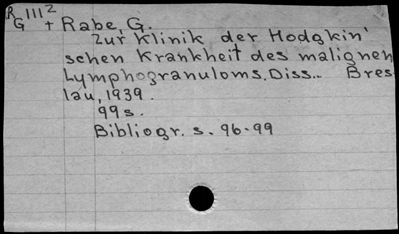 RG 1112 + Rabe, G.
Zur Klinik der Hodgkin'
schen Krankheit des malignen
Lymphogranuloms. Diss.. Bres
lau, 1939.
99 s.
Bibliogr. s. 96-99